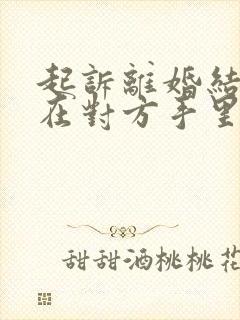 起訴離婚結
在對方手里
甜甜酒桃桃花